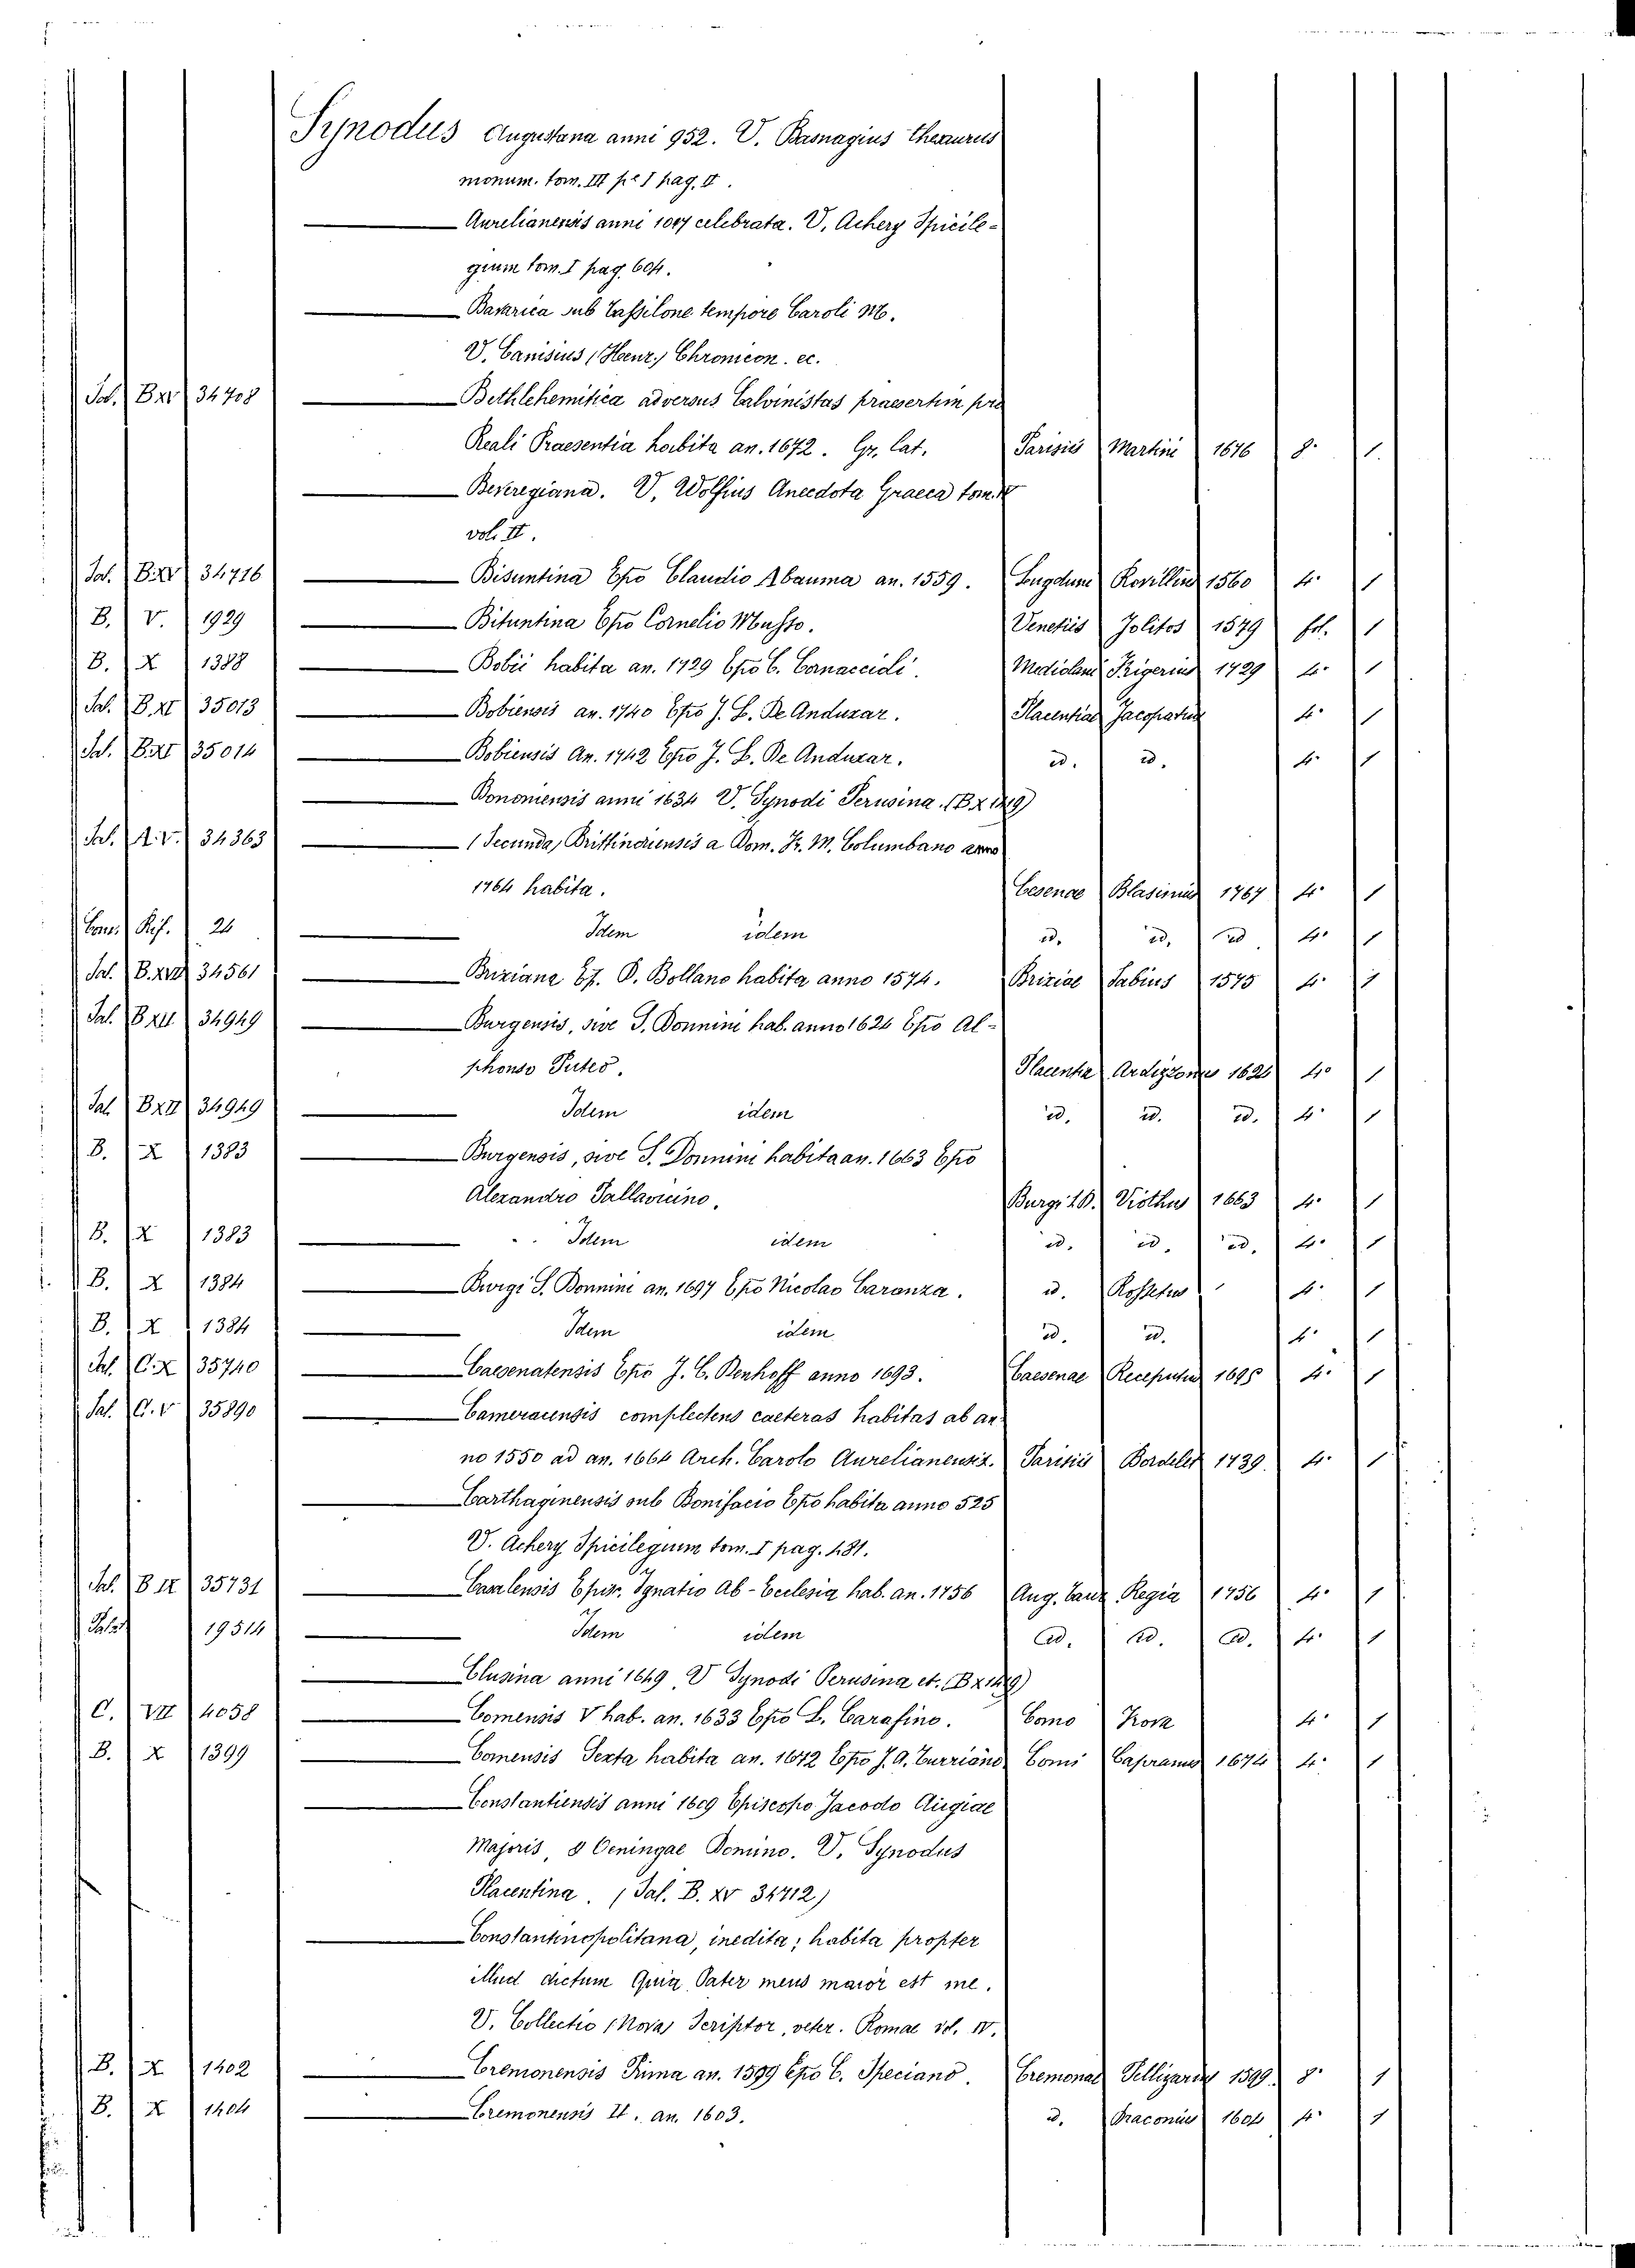 Synodus Augustana anni 952. V. Basnagius Thesaurus
monum. tom. III pe I pag. II.
Aurelianensis anni 1017 celebrata. V. Achery Spicile-
gium tom. I pag. 604.
Bavarica sub Tassilone tempore Caroli M.
V. Canisius (Henr.) Chronicon. ec.
Sal. B.XV 34708 Bethlehemitica adversus Calvinistas praesertim pro
Reali Praesentia habita an. 1672. Gr. Lat. Parisiis Martini 1676 8° 1.
Beveregiana. V. Wolfius Anecdota Graeca tom.
vol. II.
Sal. B.XV 34716 Bisuntina Epo Claudio Abauma an. 1559. Lugduni Rovillius 1560 4° 1
B. V. 1929 Bituntina Epo Cornelio Musso. Venetiis Jolitos 1579 fol. 1
B. X 1388 Bobii habita an. 1729 Epo C. Cornaccidi. Mediolani Frigerius 1729 4° 1
Sal. B.XI 35013 Bobiensis an. 1740 Epo J. L. De Anduxar. Placentiae Jacopatius 4° 1
Sal. B.XI 35014 Bobiensis An. 1742 Epo J. L. De Anduxar. id. id. 4° 1
Bononiensis anni 1634 V. Synodi Perusina. (B X 1419)
Sal. A.V. 34363 (Secunda) Brittinoriensis a Dom. Fr. M. Columbano anno
1764 habita. Cesenae Blasinius 1767 4° 1
Com. Rif. 24 Idem idem id. id. id 4° 1
Sal. B.XVII 34561 Brixiana Ep. D. Bollano habita anno 1574. Brixiae Sabius 1575 4° 1
Sal. B XII 34949 Burgensis, sive S. Donnini hab. anno 1624 Epo Al-
phonso Puteo. Placentia Ardizzonus 1624 4° 1
Sal. B XII 34949 Idem idem id. id. id. 4° 1
B. X 1383 Burgensis, sive S. Donnini habita an. 1663 Epo
Alexandro Pallavicino. Burgi S.D. Viothus 1663 4° 1
B. X 1383 Idem idem id. id. id. 4° 1
B. X 1384 Burgi S. Donnini an. 1697 Epo Nicolao Caranza. id. Rossetus 4° 1
B. X 1384 Idem idem id. id. 4° 1
Sal. C.X 35740 Caesenatensis Epo J. C. Denhoff anno 1693. Caesenae Receputus 1695 4° 1
Sal. C.V 35890 Cameracensis complectens caeteras habitas ab an-
no 1550 ad an. 1664 Arch. Carolo Aurelianensis. Parisiis Bordelet 1739. 4° 1
Carthaginensis sub Bonifacio Epo habita anno 525
V. Achery Spicilegium tom. I pag. 481.
Sal. B IX 35731 Casalensis Episc. Ignatio Ab-Ecclesia hab. an. 1756 Aug. Taur. Regia 1756 4° 1
Palat 19514 Idem idem id. id. id. 4° 1
Clusina anni 1649 V Synodi Perusina et. (B X 1419)
C. VII 4058 Comensis V hab. an. 1633 Epo L. Carafino. Como Trova 4° 1
B. X 1399 Comensis Sexta habita an. 1672 Epo J. A. Turriano Comi Capranus 1674 4° 1
Constantiensis anni 1609 Episcopo Jacodo Augiae
Majoris, & Oeningae Domino. V. Synodus
Placentina. (Sal. B. XV 34712)
Constantinopolitana, inedita; habita propter
illud dictum Quia Pater meus maior est me.
V. Collectio (Nova) Scriptor, veter. Romae vol. IV.
B. X 1402 Cremonensis Prima an. 1599 Epo C. Speciano. Cremonae Pellizarius 1599. 8° 1
B. X 1404 Cremonensis II. an. 1603. id. Draconius 1604 4° 1